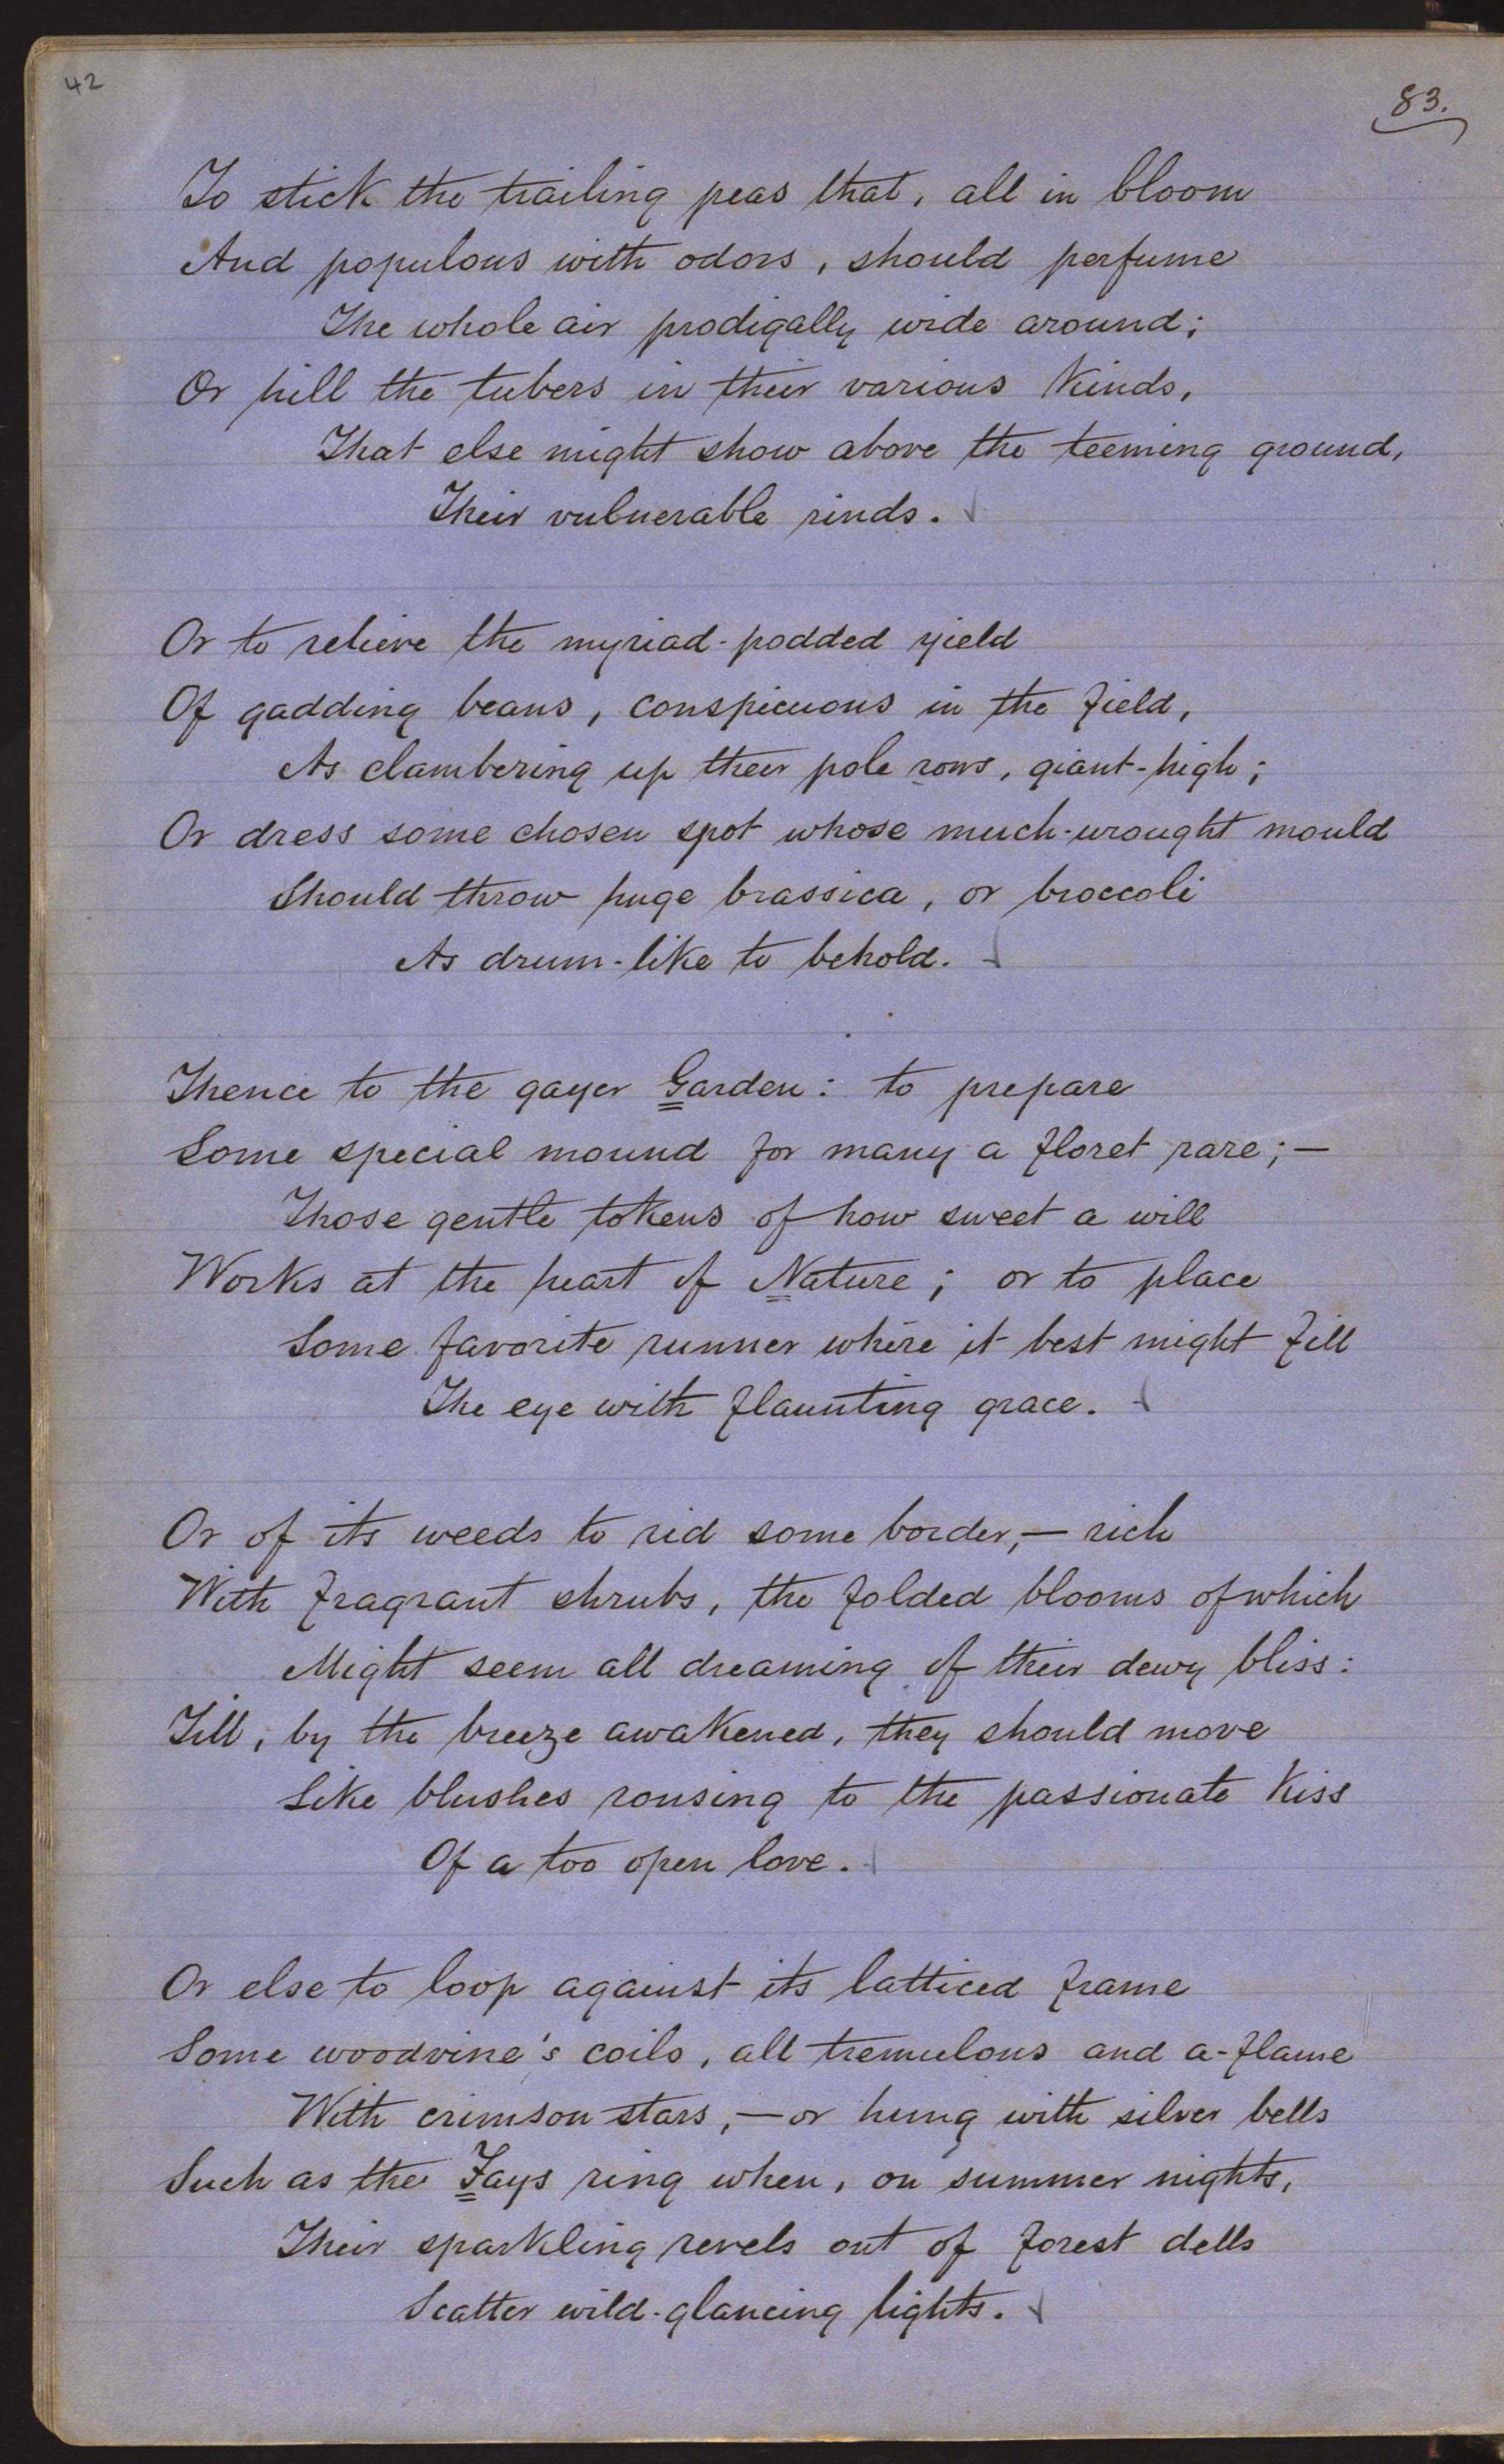 42
83.
To stick the trailing peas that, all in bloom
And populous with odors, should perfume
The whole air prodigally wide around;
Or hill the tubers in their various kinds,
That else might show above the teeming ground,
Their vulnerable rinds.
Or to relieve the myriad-podded yield
Of gadding beans, conspicuous in the field,
As clambering up their pole rows, giant-high;
Or dress some chosen spot whose much-wrought mould
Should throw huge brassica, or broccoli
As drum-like to behold.
Thence to the gayer Garden: to prepare
Some special mound for many a floret rare;—
Those gentle tokens of how sweet a will
Works at the heart of Nature; or to place
Some favorite runner where it best might fill
The eye with flaunting grace.
Or of its weeds to rid some border,— rich
With fragrant shrubs, the folded blooms of which
Might seem all dreaming of their dewy bliss:
Till, by the breeze awakened, they should move
Like blushes rousing to the passionate kiss
Of a too open love.
Or else to loop against its latticed frame
Some woodvine's coils, all tremulous and a-flame
With crimson stars,—or hung with silver bells
Such as the Fays ring when, on summer nights,
Their sparkling revels out of forest dells
Scatter wild-glancing lights.